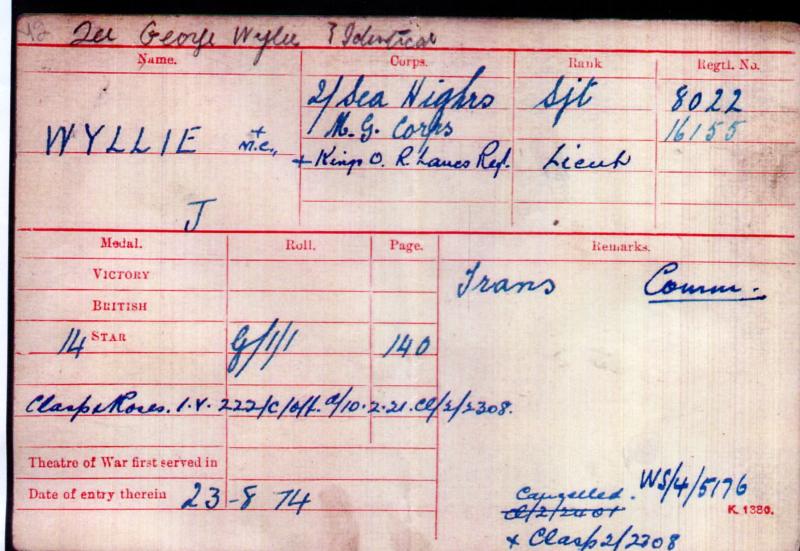 42 See George Wylie ? Identical
Name. Corps. Rank Regtl. No.
2/Sea Highrs Sjt 8022
WYLLIE + M.C., M.G. Corps 16155
+ Kings O. R. Lancs Reg. Lieut
J
Medal. Roll. Page. Remarks.
VICTORY Trans Comm.
BRITISH
14 STAR G/1/1 140
Clasp & Roses. I.V. 222/C/Off. d/10.2.21. Cl/2/2308.
Theatre of War first served in
Date of entry therein 23-8 14
Cancelled. WS/4/5176
K. 1380.
+ Clasp 2/2308